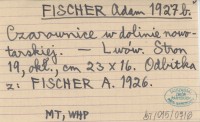 FISCHER Adam 1927 b.
Czarownice w dolinie nowo-
tarskiej. — Lwów. Stron
19, okł., cm 23 × 16. Odbitka
z: FISCHER A. 1926.
MT, WHP